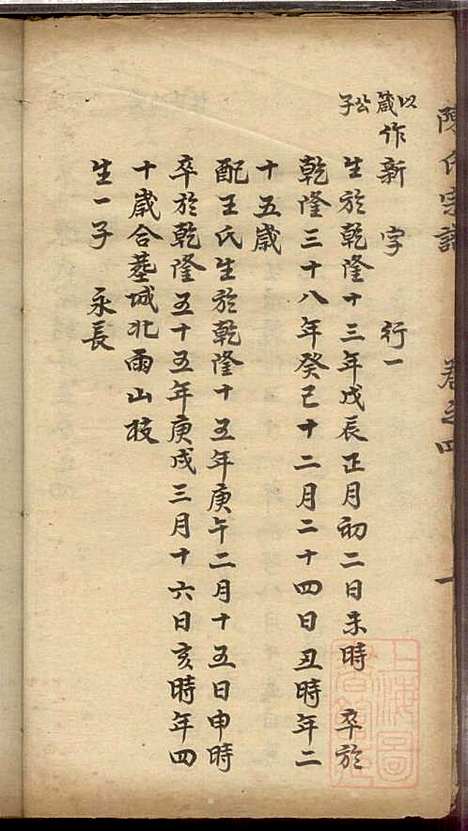 陳氏宗譜 卷之四 一
以箴公子
作新 字 行一
生於乾隆十三年戊辰正月初二日未時 卒於
乾隆三十八年癸巳十二月二十四日丑時年二
十五歲
配王氏生於乾隆十五年庚午二月十五日申時
卒於乾隆五十五年庚戌三月十六日亥時年四
十歲合墓城北雨山枝
生一子 永長
上海圖